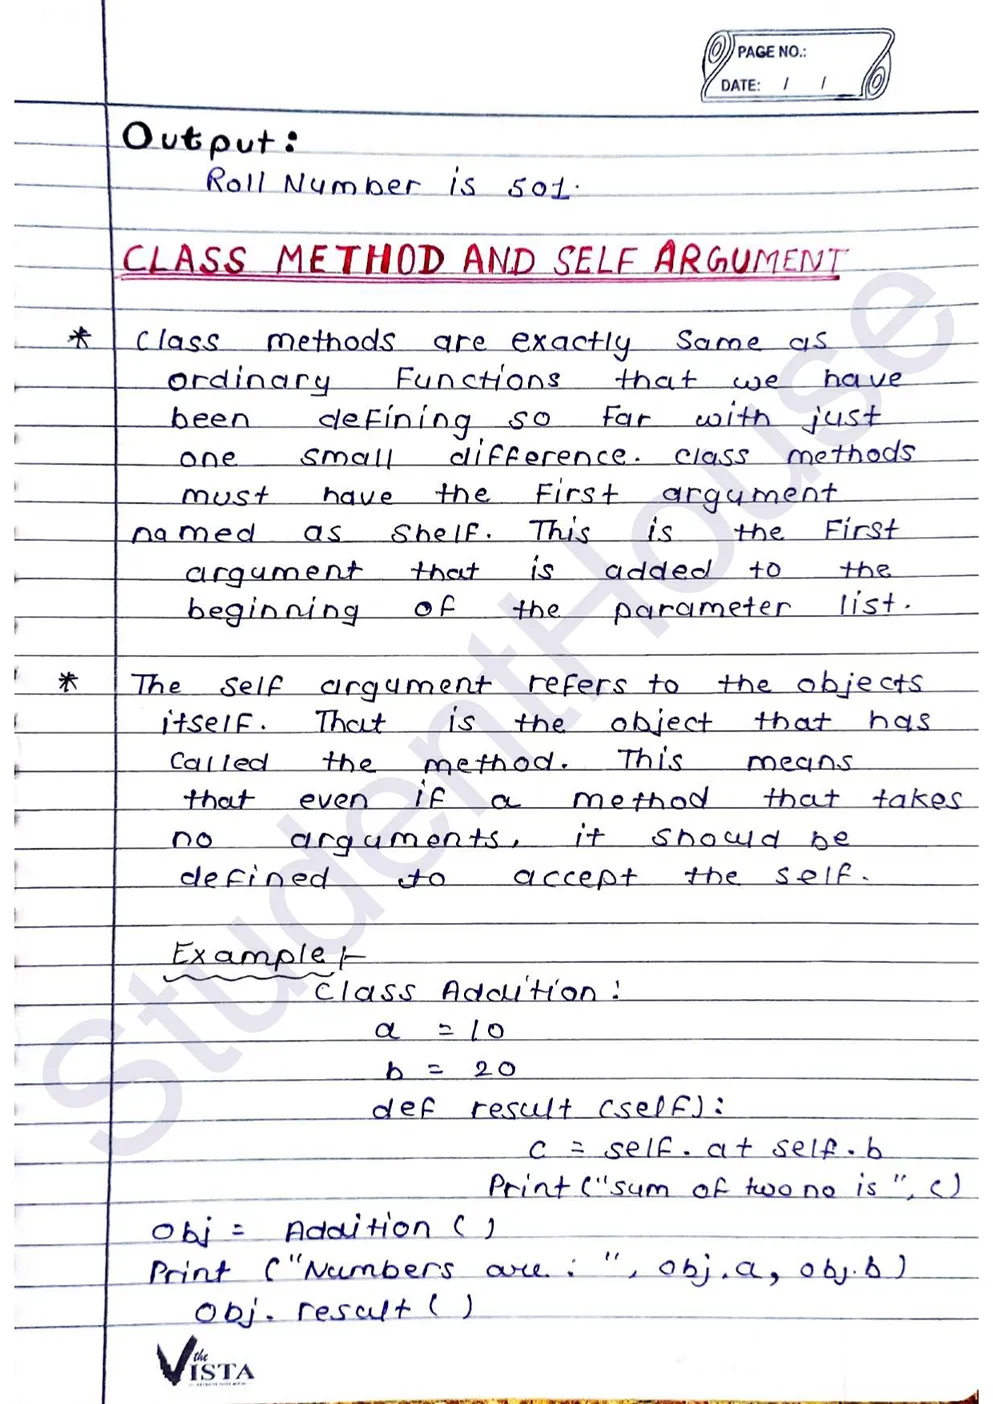 PAGE NO.:
DATE: / /
Output:
Roll Number is 501.
CLASS METHOD AND SELF ARGUMENT
* Class methods are exactly Same as
ordinary Functions that we have
been defining so far with just
one small difference. class methods
must have the First argument
named as Shelf. This is the First
argument that is added to the
beginning of the parameter list.
* The self argument refers to the objects
itself. That is the object that has
Called the method. This means
that even if a method that takes
no arguments, it should be
defined to accept the self.
Example :-
Class Addition :
a = 10
b = 20
def result (self) :
c = self.a + self.b
Print ("sum of two no is ", c)
obj = Addition ( )
Print ("Numbers are : ", obj.a, obj.b)
obj. result ( )
the
VISTA
StudentHouse